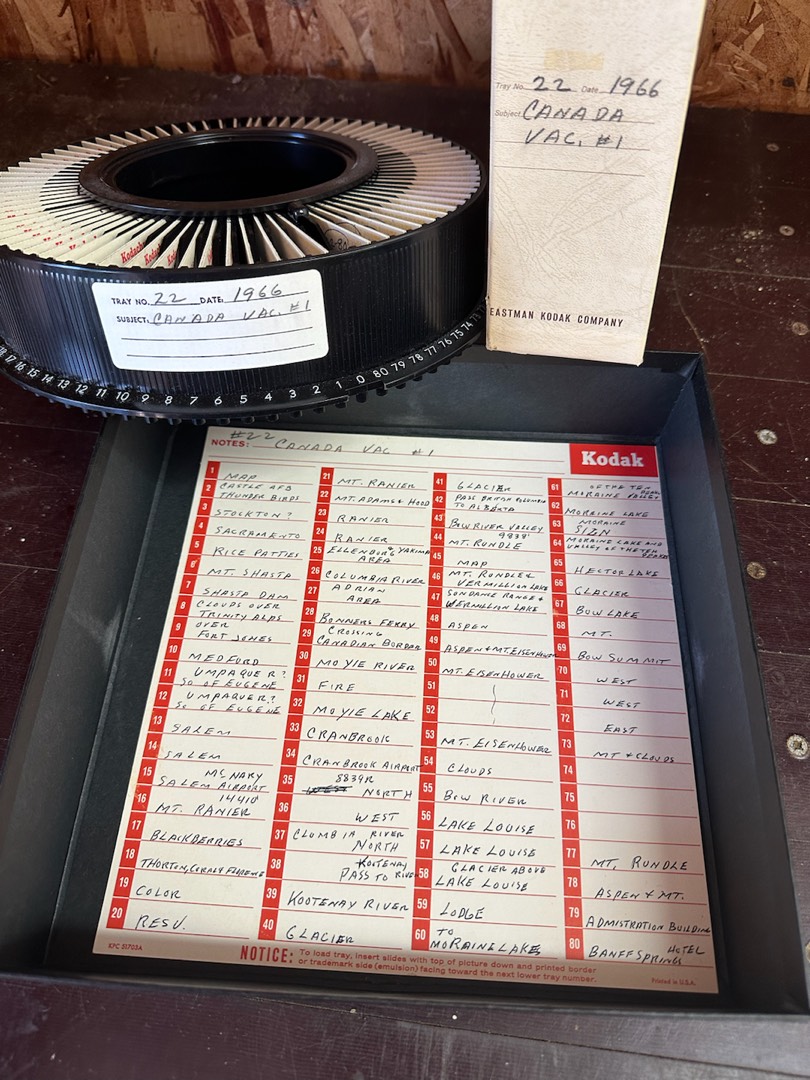 Tray No. 22 Date 1966
Subject CANADA
VAC. #1
EASTMAN KODAK COMPANY
Kodachr
TRAY NO. 22 DATE 1966
SUBJECT. CANADA VAC. #1
17 16 15 14 13 12 11 10 9 8 7 6 5 4 3 2 1 0 80 79 78 77 76 75 74
#22
NOTES: CANADA VAC #1
Kodak
1 MAP
2 CASTLE AFB
THUNDER BIRDS
3 STOCKTON?
4 SACRAMENTO
5 RICE PATTIES
6 MT. SHASTA
7 SHASTA DAM
8 CLOUDS OVER
TRINITY ALPS
9 OVER
FORT JONES
10 MEDFORD
11 UMPAQUER?
SO OF EUGENE
12 UMPAQUER?
SO OF EUGENE
13 SALEM
14 SALEM
15 MCNARY
SALEM AIRPORT
16 14410'
MT. RANIER
17 BLACKBERRIES
18 THORTON, CORALY FLORENCE
19 COLOR
20 RESV.
21 MT. RANIER
22 MT. ADAMS & HOOD
23 RANIER
24 RANIER
25 ELLENDORG & YAKIMA
AREA
26 COLUMBIA RIVER
27 ADRIAN
AREA
28 BONNERS FERRY
29 CROSSING
CANADIAN BORDER
30 MOYIE RIVER
31 FIRE
32 MOYIE LAKE
33 CRANBROOK
34 CRANBROOK AIRPORT
35 8839R
NORTH
36 WEST
37 CLUMBIA RIVER
NORTH
38 KOOTENAY
PASS TO RIVER
39 KOOTENAY RIVER
40 GLACIER
41 GLACIER
42 PASS BRITISH COLUMBIA
TO ALBERTA
43 BOW RIVER VALLEY
44 9838'
MT. RUNDLE
45 MAP
46 MT. RUNDLE &
VERMILLION LAKE
47 SUNDANCE RANGE &
VERMILLION LAKE
48 ASPEN
49 ASPEN & MT. EISENHOWER
50 MT. EISENHOWER
51
52
53 MT. EISENHOWER
54 CLOUDS
55 BOW RIVER
56 LAKE LOUISE
57 LAKE LOUISE
58 GLACIER ABOVE
LAKE LOUISE
59 LODGE
60 TO
MORAINE LAKES
61 OF THE TEN PEAKS
MORAINE VALLEY
62 MORAINE LAKE
63 MORAINE
SIGN
64 MORAINE LAKE AND
VALLEY OF THE TEN PEAKS
65 HECTOR LAKE
66 GLACIER
67 BOW LAKE
68 MT.
69 BOW SUMMIT
70 WEST
71 WEST
72 EAST
73 MT & CLOUDS
74
75
76
77 MT. RUNDLE
78 ASPEN & MT.
79 ADMISTRATION BUILDING
80 HOTEL
BANFF SPRINGS
KPC 51703A
NOTICE: To load tray, insert slides with top of picture down and printed border
or trademark side (emulsion) facing toward the next lower tray number.
Printed in U.S.A.